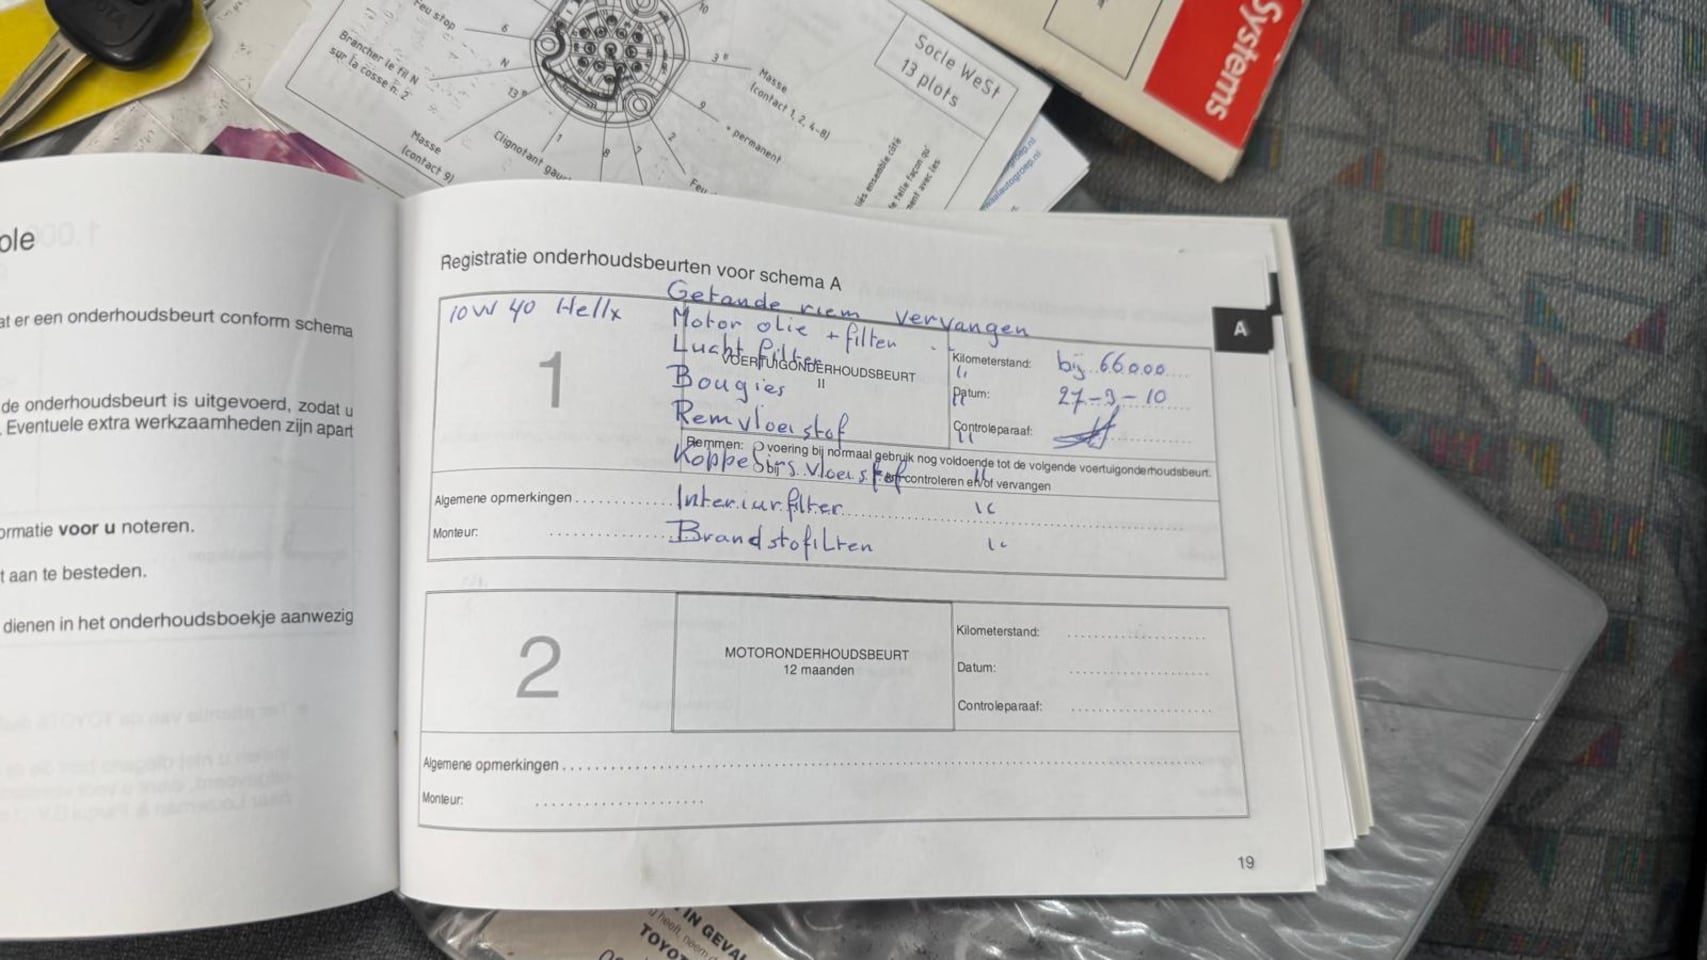 Feu stop
6
10
Brancher le fil N
sur la cosse n. 2
N
13
Masse
(contact 9)
Clignotant gauc
1
8
7
2
Feu
9
+ permanent
3
Masse
(contact 1, 2, 4-8)
Socle WeSt
13 plots
Systems
ole
at er een onderhoudsbeurt conform schema
de onderhoudsbeurt is uitgevoerd, zodat u
. Eventuele extra werkzaamheden zijn apart
ormatie voor u noteren.
t aan te besteden.
dienen in het onderhoudsboekje aanwezig
Registratie onderhoudsbeurten voor schema A
A
Getande riem vervangen
10W 40 Hellx
Motor olie + filten
Lucht filter
1
VOERTUIGONDERHOUDSBEURT
Kilometerstand: bij 66000
Bougies
Datum: 27-9-10
Remvloeistof
Controleparaaf:
Remmen: voering bij normaal gebruik nog voldoende tot de volgende voertuigonderhoudsbeurt.
controleren en/of vervangen
Algemene opmerkingen
Interiurfilter
Monteur:
Brandstofilten
2
MOTORONDERHOUDSBEURT
12 maanden
Kilometerstand:
Datum:
Controleparaaf:
Algemene opmerkingen
Monteur:
19
IN GEVA
TOYOT